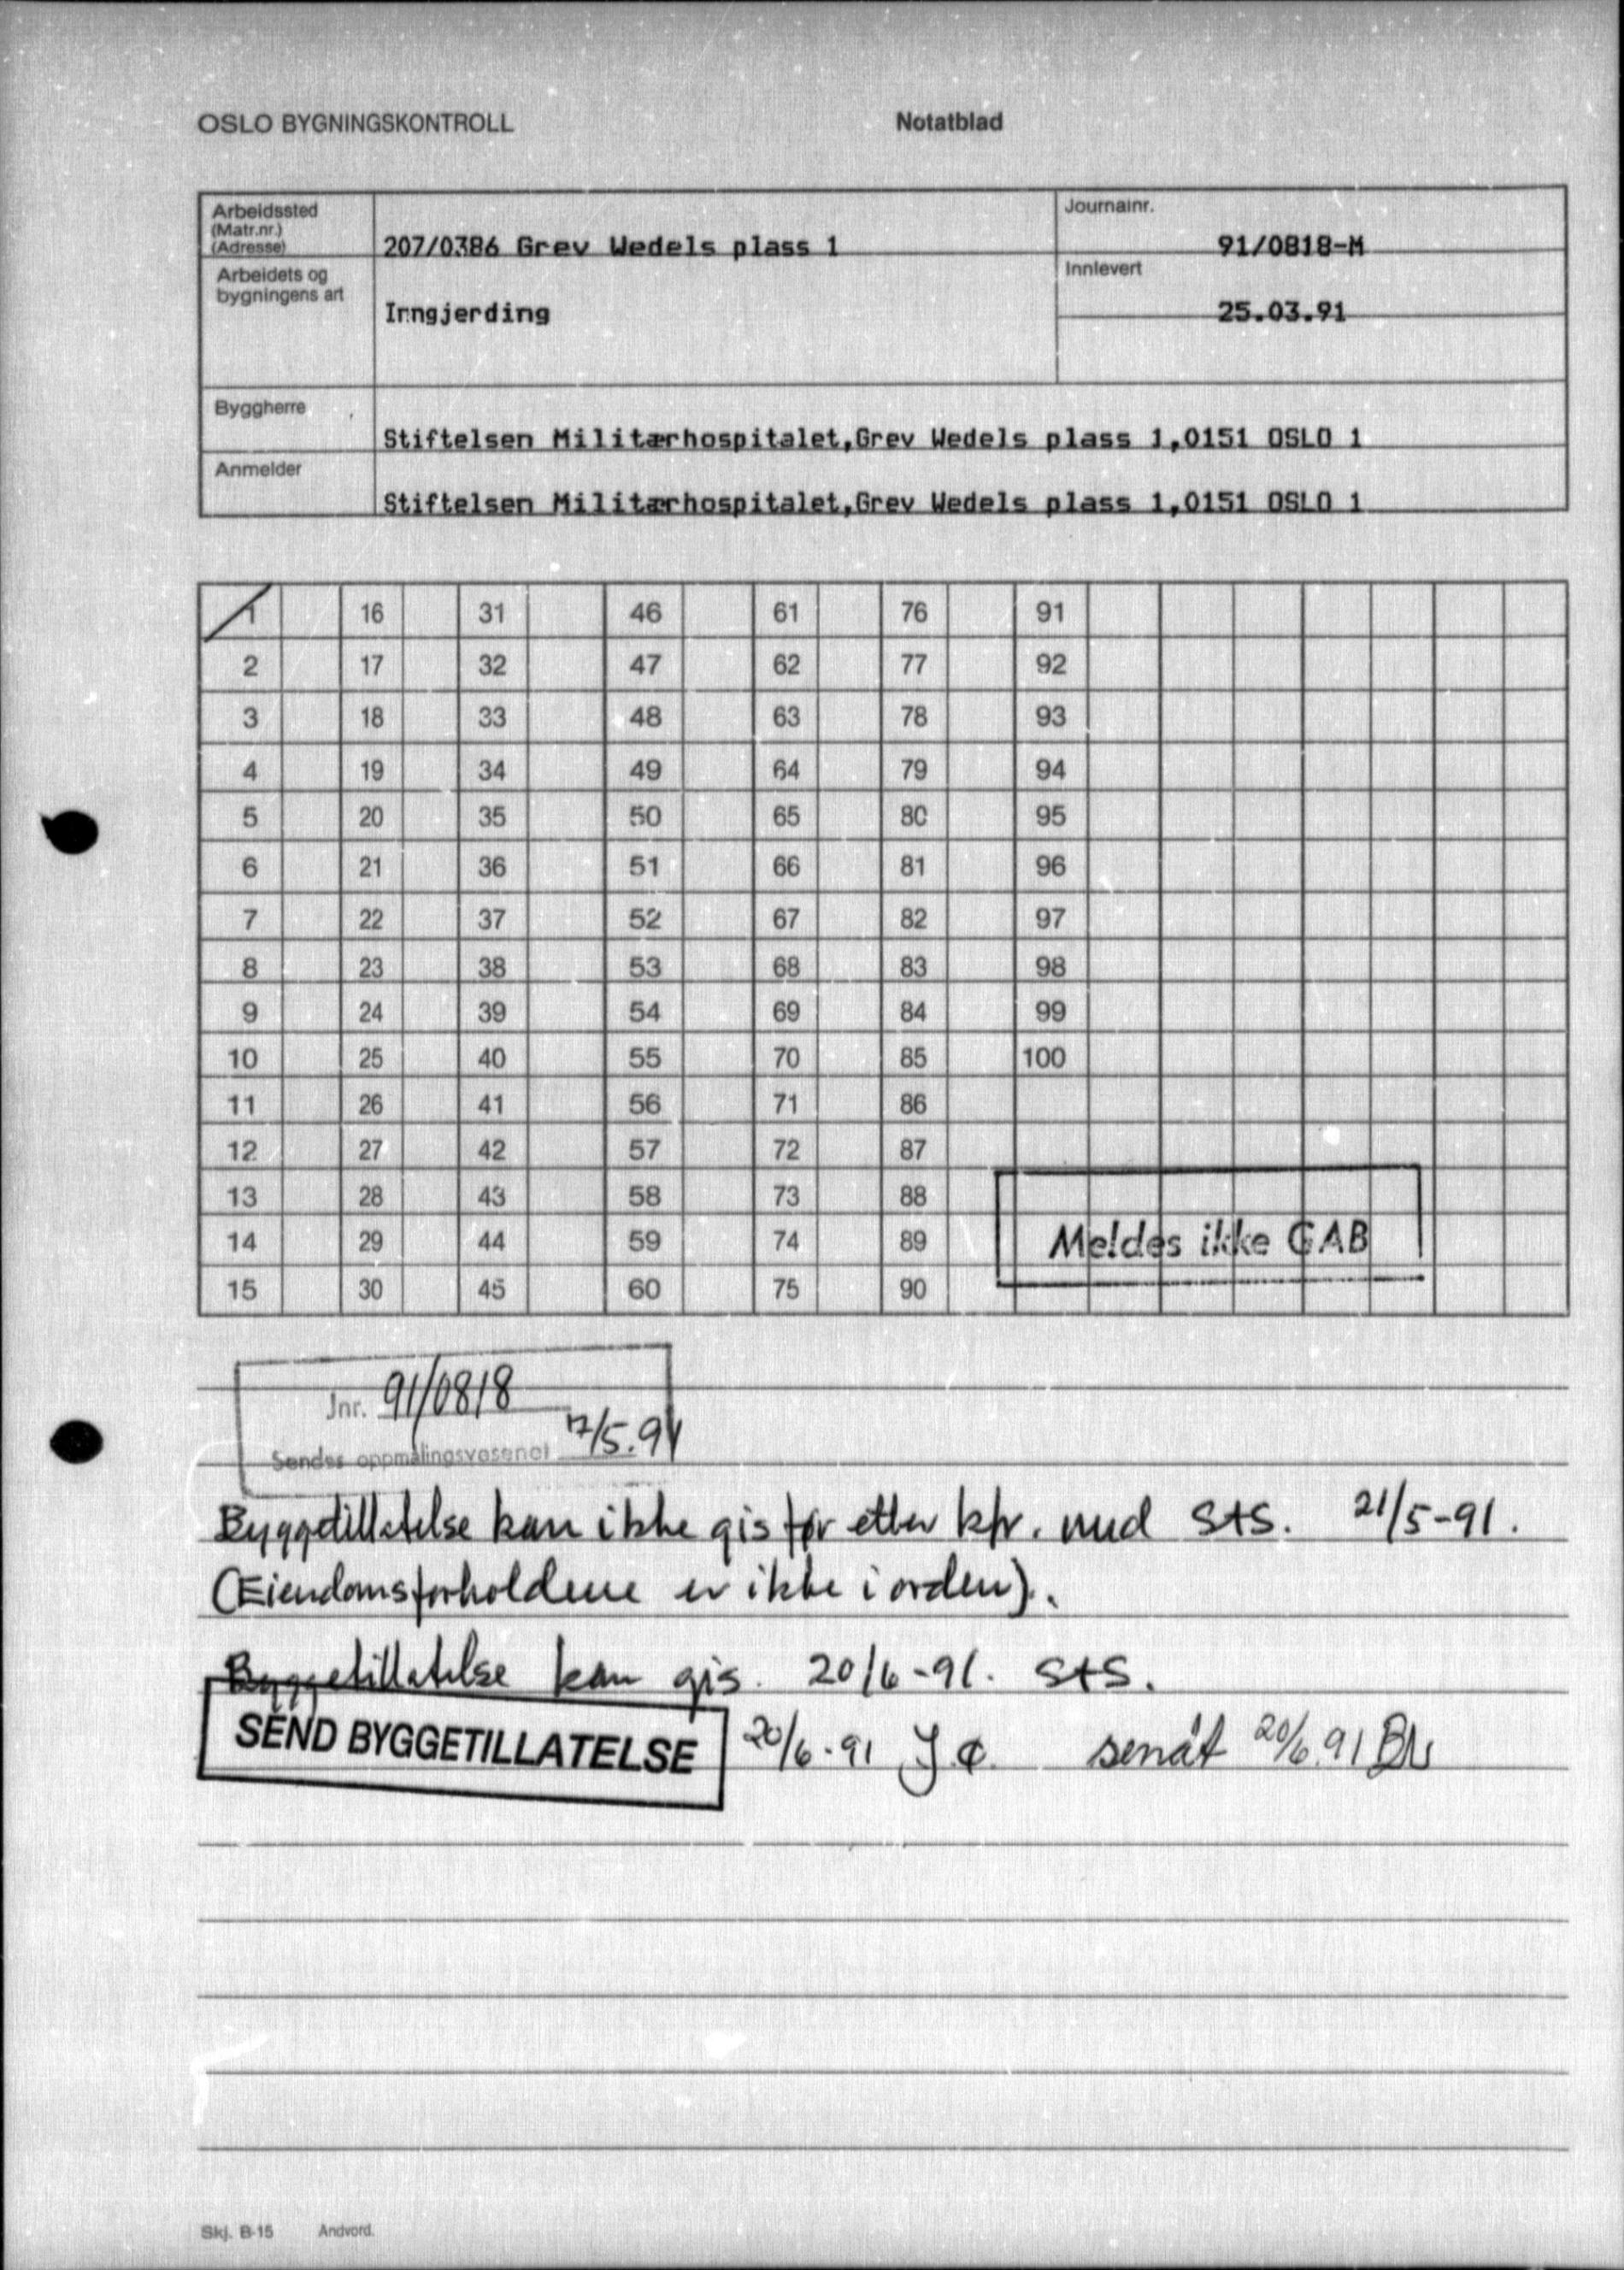 OSLO BYGNINGSKONTROLL Notatblad
Arbeidssted
(Matr.nr.)
(Adresse) 207/0386 Grev Wedels plass 1 Journalnr. 91/0818-M
Arbeidets og
bygningens art Inngjerding Innlevert 25.03.91
Byggherre Stiftelsen Militærhospitalet,Grev Wedels plass 1,0151 OSLO 1
Anmelder Stiftelsen Militærhospitalet,Grev Wedels plass 1,0151 OSLO 1
1 16 31 46 61 76 91
2 17 32 47 62 77 92
3 18 33 48 63 78 93
4 19 34 49 64 79 94
5 20 35 50 65 80 95
6 21 36 51 66 81 96
7 22 37 52 67 82 97
8 23 38 53 68 83 98
9 24 39 54 69 84 99
10 25 40 55 70 85 100
11 26 41 56 71 86
12 27 42 57 72 87
13 28 43 58 73 88
14 29 44 59 74 89 Meldes ikke GAB
15 30 45 60 75 90
Jnr. 91/0818
Sendes oppmålingsvesenet
Byggetillatelse kan ikke gis før etter kfr. med StS. 21/5-91.
(Eiendomsforholdene er ikke i orden).
Byggetillatelse kan gis. 20/6-91. StS.
SEND BYGGETILLATELSE 20/6-91 sendt 20/6.91
Skj. B-15 Andvord.